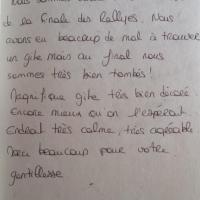 de la finale des Rallyes. Nous
avons eu beaucoup de mal à trouver
un gîte mais au final nous
sommes très bien tombés !
Magnifique gîte très bien décoré.
Encore mieux qu'on l'espérait.
Endroit très calme, très agréable
Merci beaucoup pour votre
gentillesse